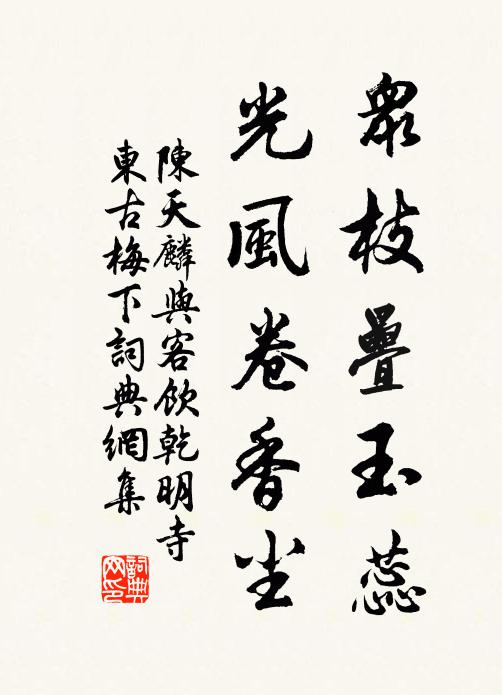 眾枝疊玉蕊
光風卷香尘
陳天麟與客飲乾明寺
東古梅下詞典網集
詞典
网印